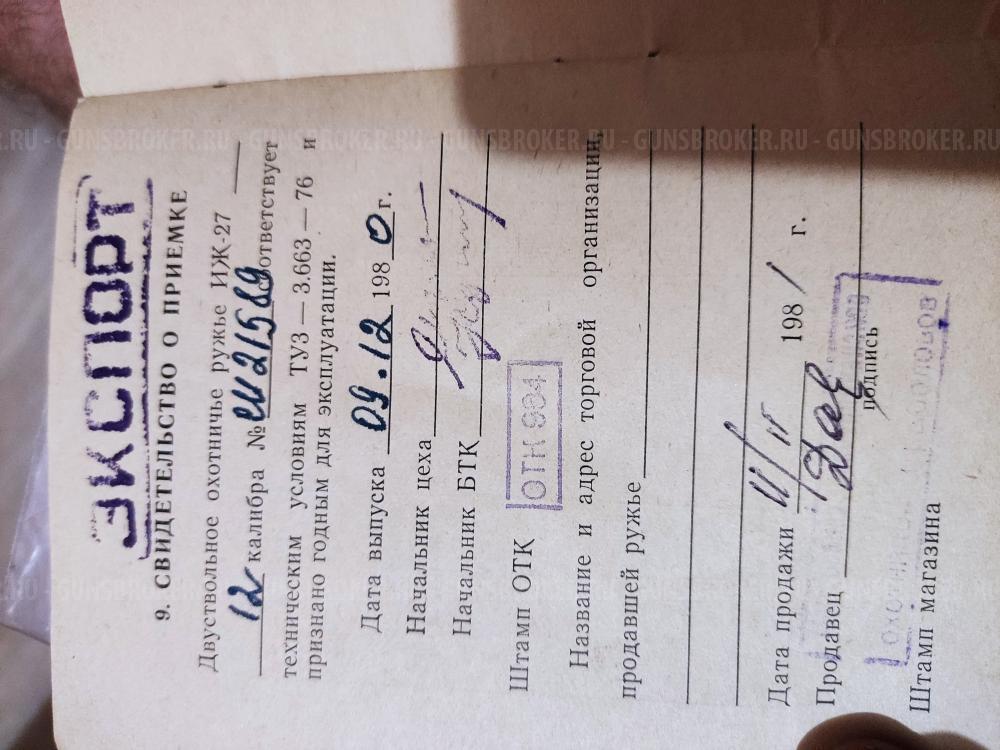 ЭКСПОРТ
9. СВИДЕТЕЛЬСТВО О ПРИЕМКЕ
Двуствольное охотничье ружье ИЖ-27
12 калибра № Ш21589 соответствует
техническим условиям ТУ3 — 3.663 — 76 и
признано годным для эксплуатации.
Дата выпуска 09.12 1980 г.
Начальник цеха
Начальник БТК
Штамп ОТК ОТК 984
Название и адрес торговой организации,
продавшей ружье
Дата продажи 11/II 1981 г.
Продавец
подпись
Штамп магазина
GUNSBROKER.RU - GUNSBROKER.RU - GUNSBROKER.RU - GUNSBROKER.RU